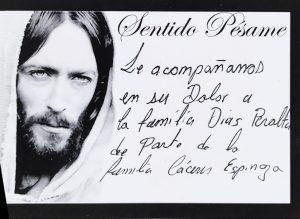 Sentido Pésame
Le acompañamos
en su Dolor a
la familia Dias Peralta
de Parte de la
familia Cáceres Espinoza